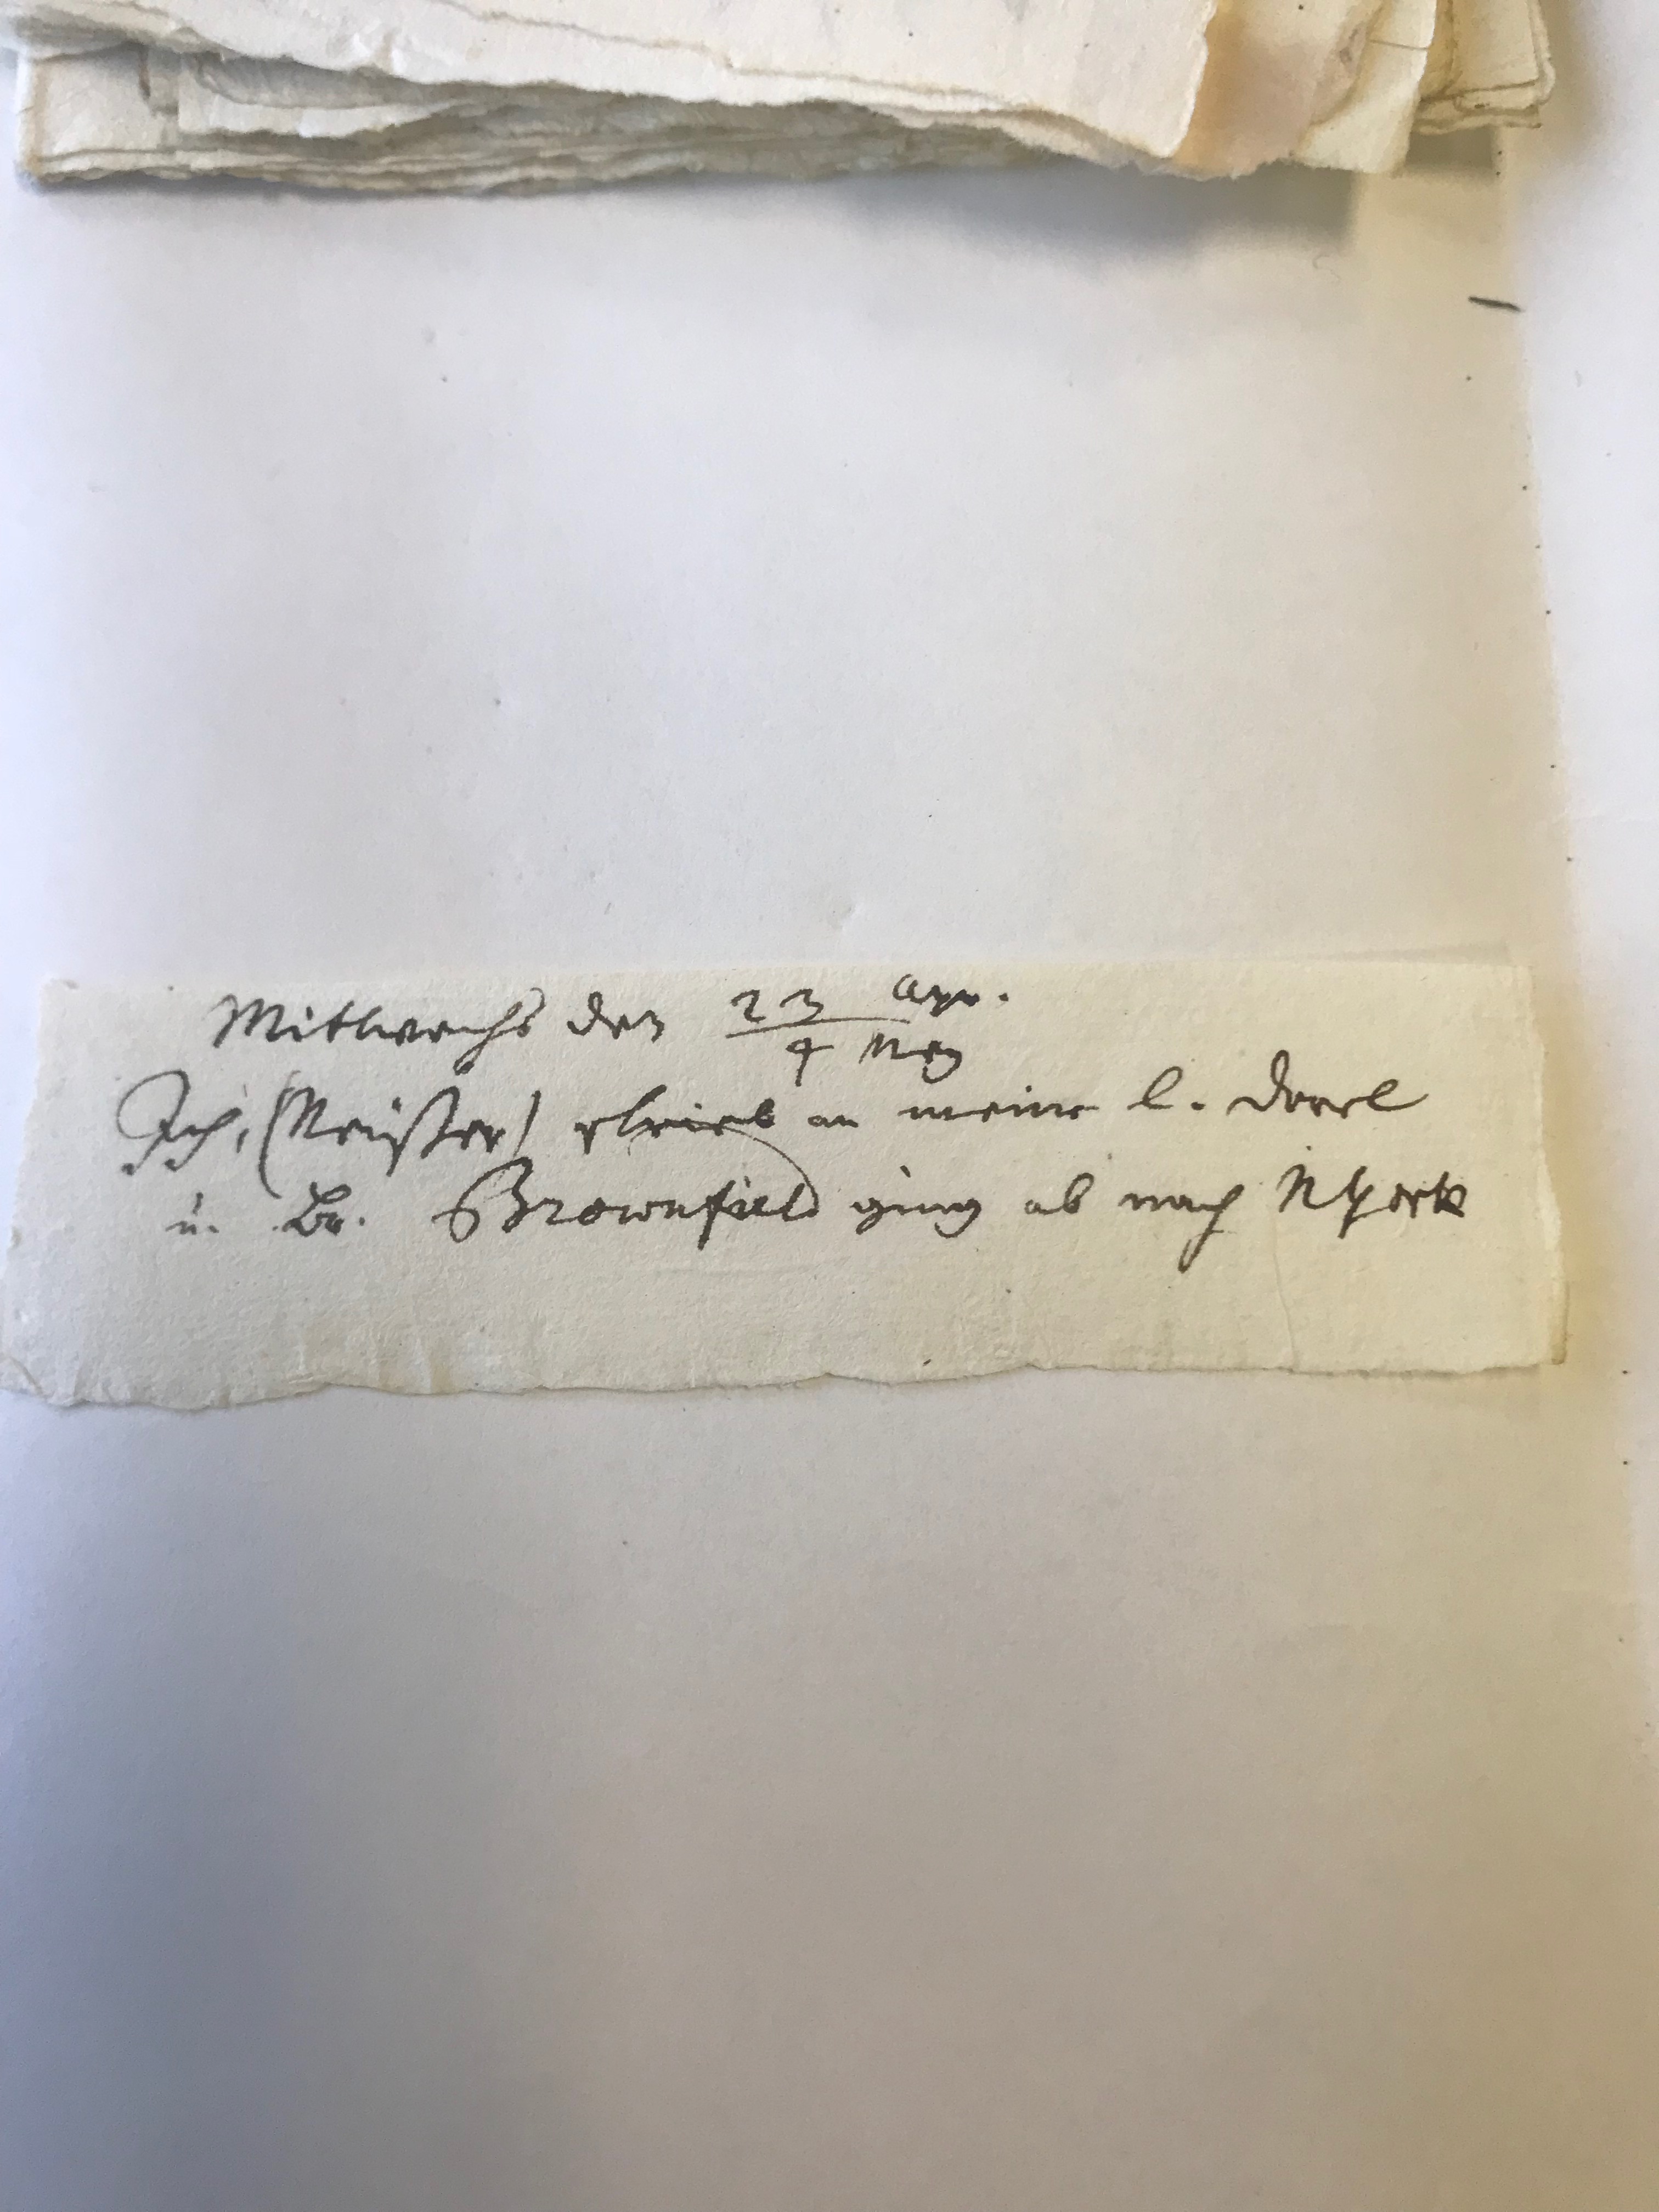 Mittwochs den 23 Apr.
4 May
Ich, (Neisser) schrieb an meine l. Dorel
u. Br. Brownfield ging ab nach NYork